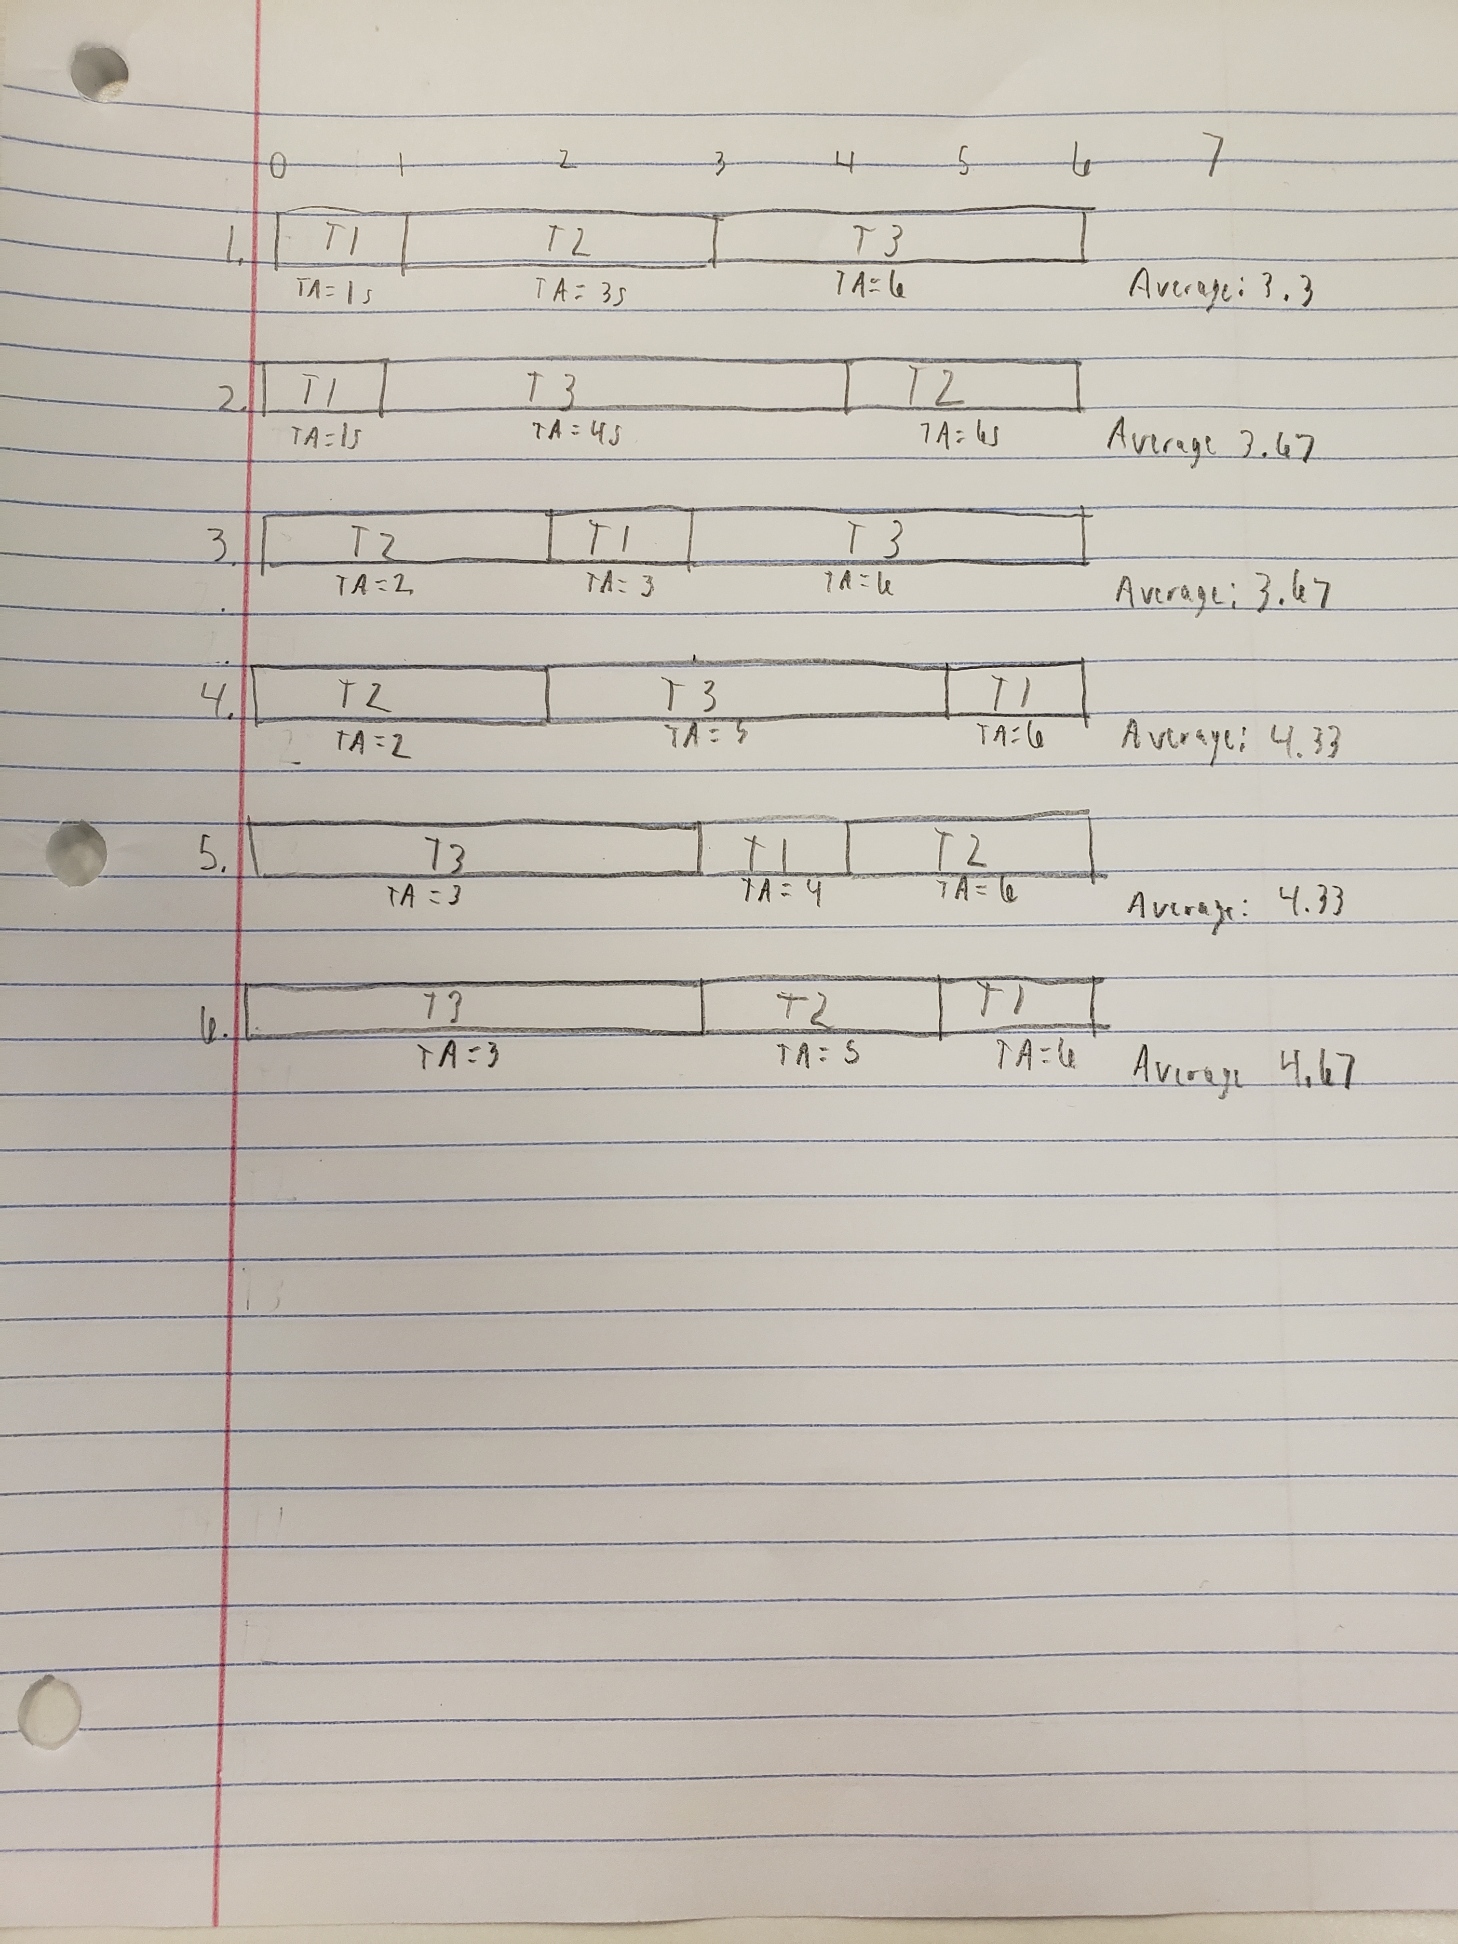 0 1 2 3 4 5 6 7
1. T1 T2 T3
TA=1s TA=3s TA=6 Average: 3.3
2. T1 T3 T2
TA=1s TA=4s TA=6s Average 3.67
3. T2 T1 T3
TA=2 TA=3 TA=6 Average: 3.67
4. T2 T3 T1
TA=2 TA=5 TA=6 Average: 4.33
5. T3 T1 T2
TA=3 TA=4 TA=6 Average: 4.33
6. T3 T2 T1
TA=3 TA=5 TA=6 Average 4.67